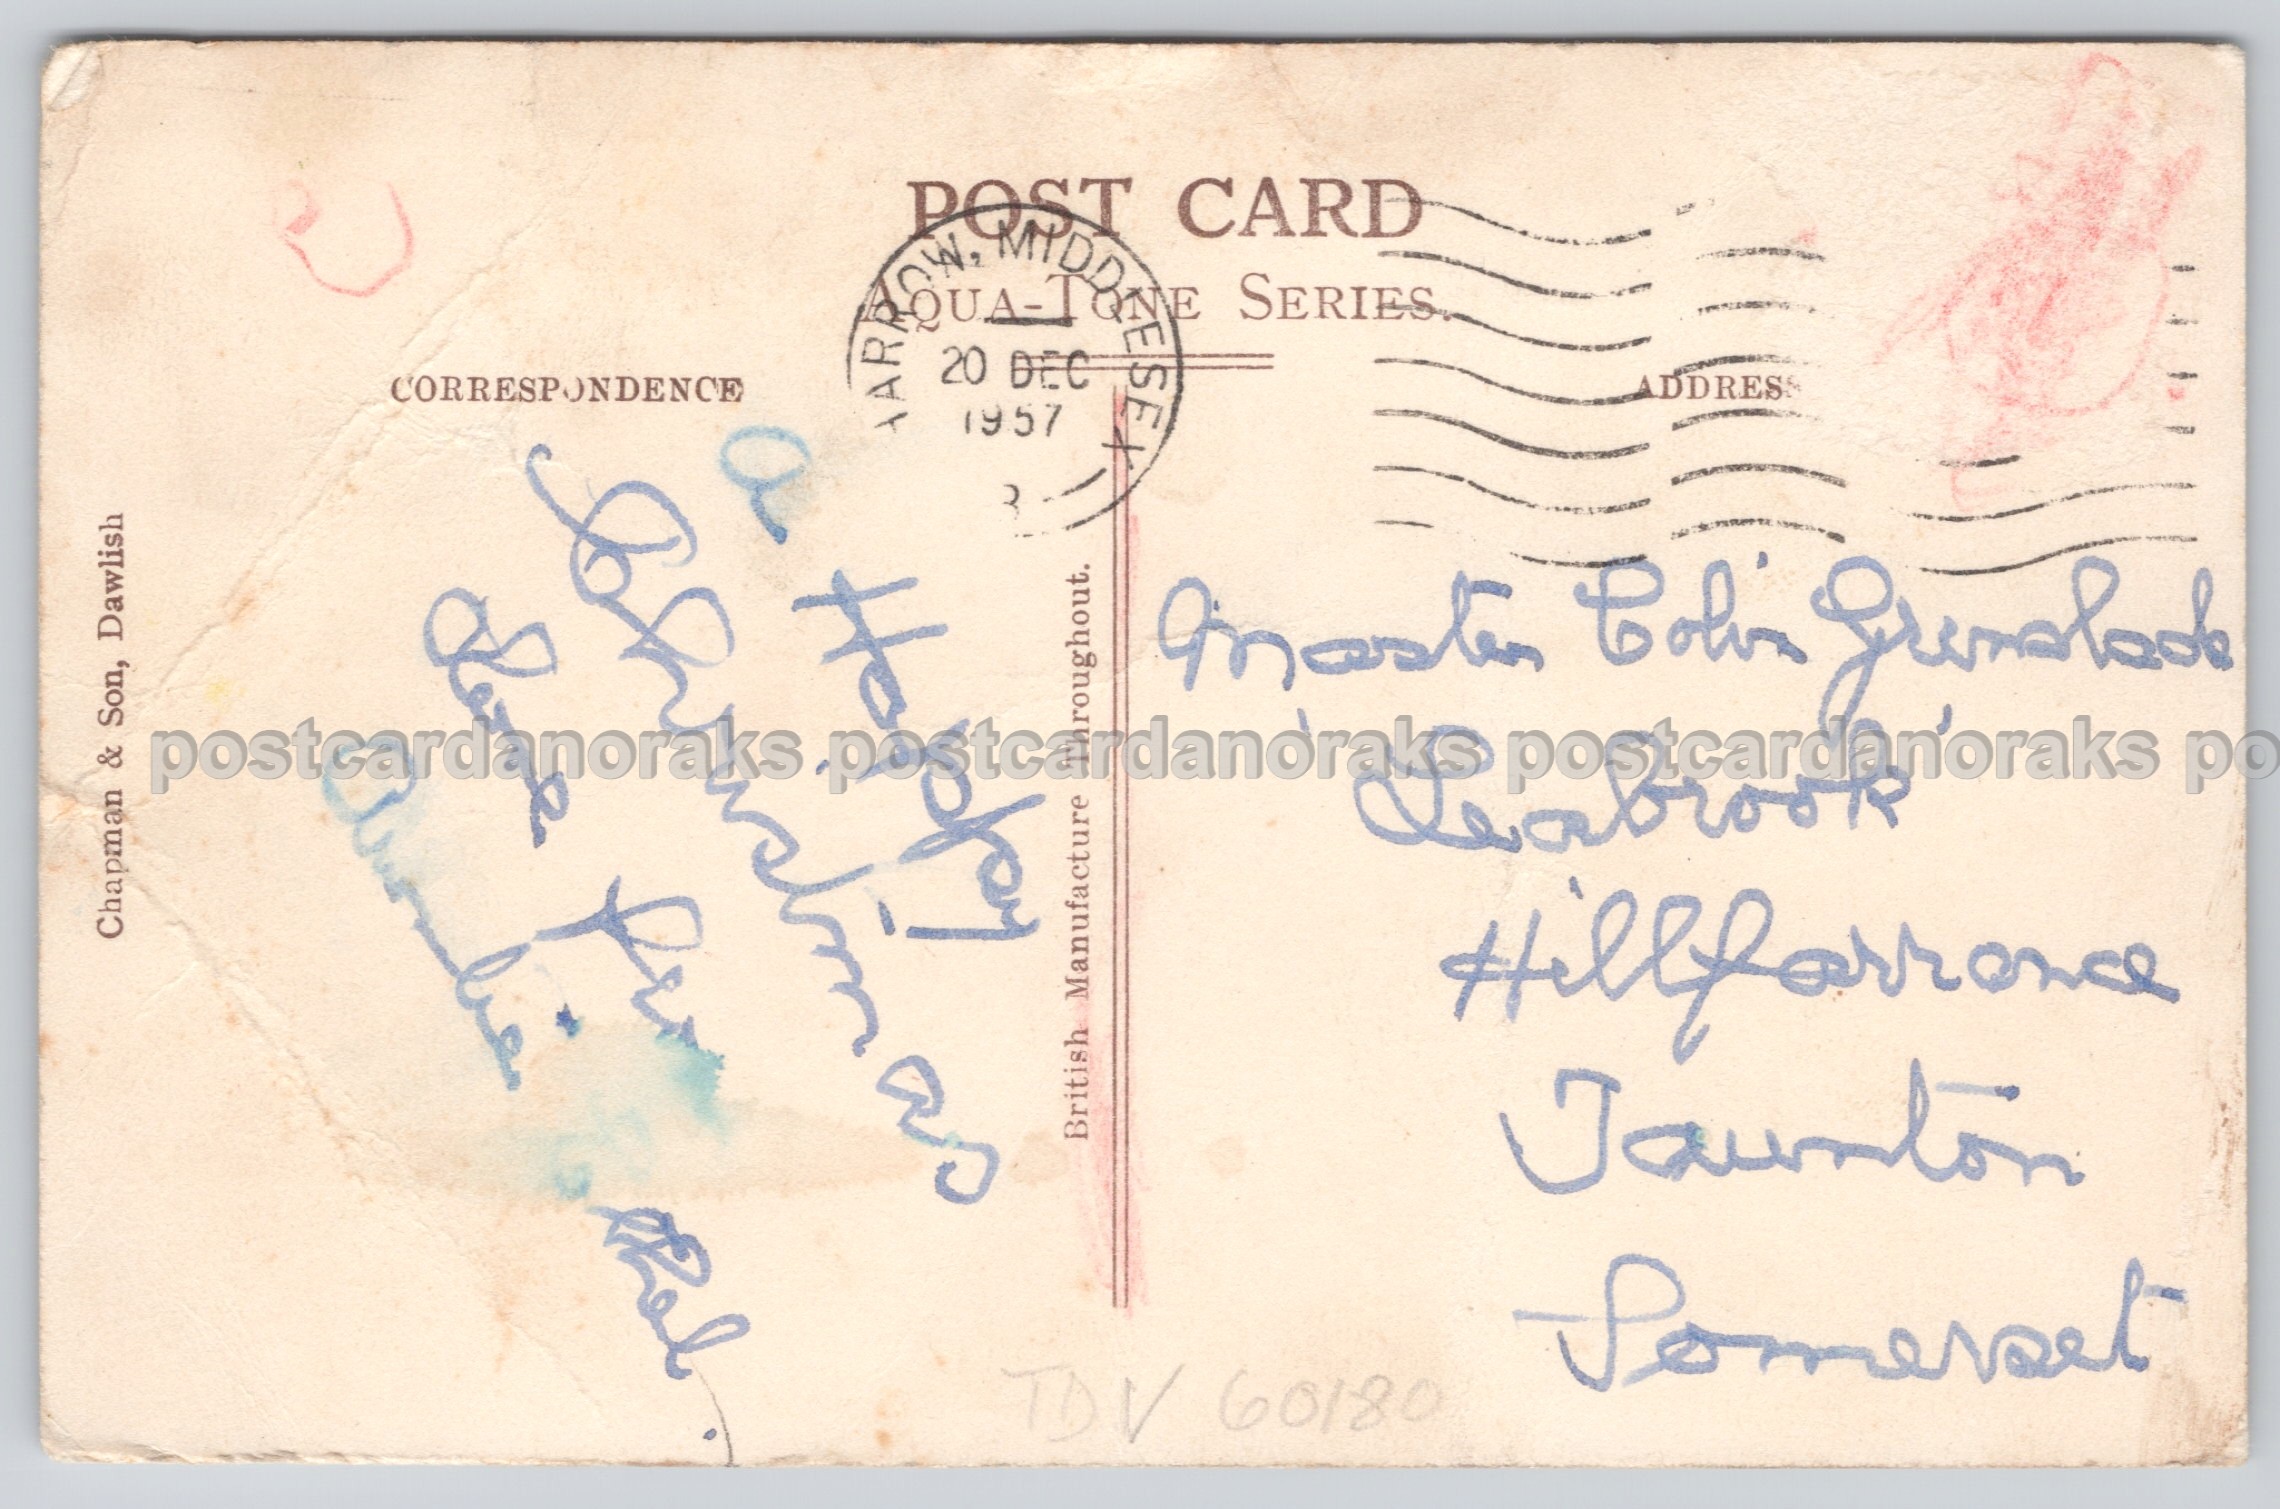 POST CARD
AQUA-TONE SERIES.
CORRESPONDENCE
ADDRESS
HARROW, MIDDLESEX
20 DEC
1957
Chapman & Son, Dawlish
British Manufacture Throughout.
A
Happy
Christmas
Love from
Auntie
Master Colin Greenslade
"Seabrook"
Hillfarrance
Taunton
Somerset
TDV 60180
postcardanoraks postcardanoraks postcardanoraks po